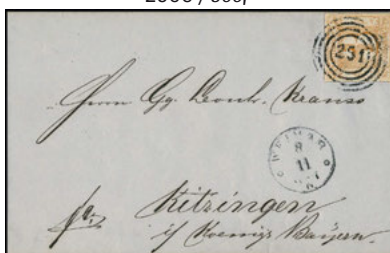 231
Herrn Gg. Leonh. Krauss
WEIMAR
8
11
fr.
Kitzingen
i/ Koenigr. Bayern.